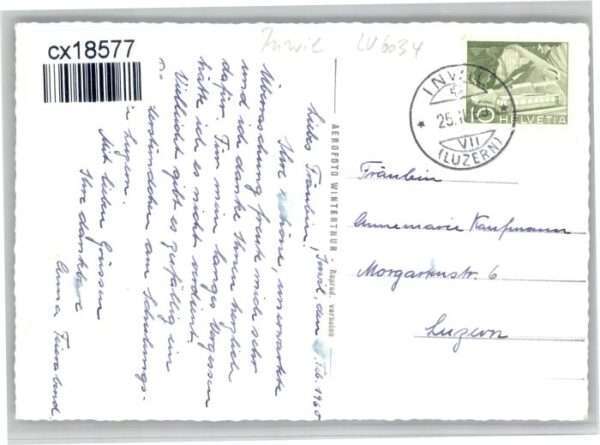 cx18577
Inwil LU 6034
INWIL
25.
VII
(LUZERN)
10
HELVETIA
AEROFOTO WINTERTHUR Reprod. verboten
Fräulein
Annemarie Kaufmann
Morgartenstr. 6
Luzern
Inwil, den Feb. 1960
Liebes Fräulein!
Ihre schöne, unerwartete
Überraschung freute mich sehr
und ich danke Ihnen herzlich
dafür. Für mein langes Vergessen
hätte ich es nicht verdient.
Vielleicht gibt es gefällig ein
am
legen.
Mit lieben Grüssen
Ihre dankbare
Anna